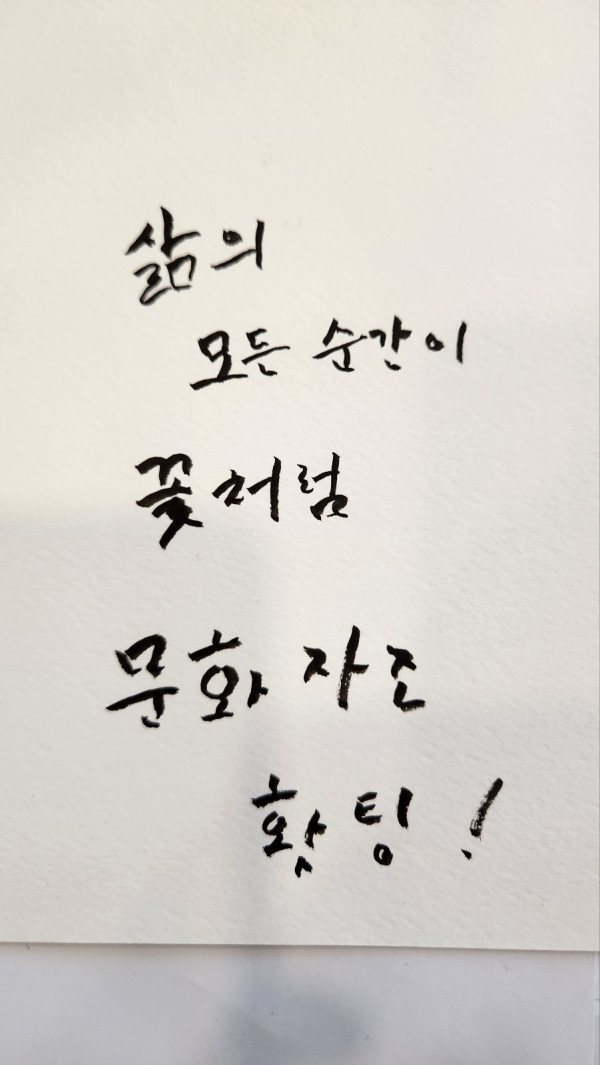 삶의
모든 순간이
꽃처럼
문화자조
홧팅!